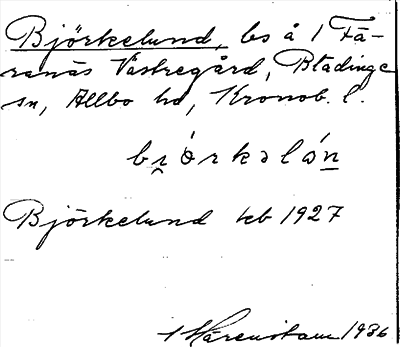 Björkelund, bs å 1 Fä-
ranäs Västregård, Blädinge
sn, Allbo hd, Kronob. l.
bi̯órkəlón
Björkelund kb 1927
1936